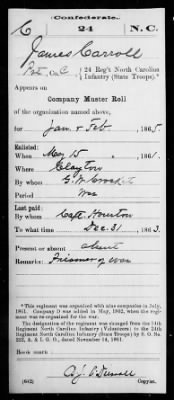 Confederate.
C 24 N.C.
James Carroll
Pvt, Co. C, 24 Reg't North Carolina
Infantry (State Troops).*
Appears on
Company Muster Roll
of the organization named above,
for Jan & Feb, 1865
Enlisted:
When May 15, 1861.
Where Clayton
By whom
Period War
Last paid:
By whom Capt. Hunton
To what time Dec. 31, 1863.
Present or absent absent
Remarks: Prisoner of war
*This regiment was organized with nine companies in July,
1861. Company D was added in May, 1862, when the regiment
was reorganized for the war.
The designation of the regiment was changed from the 14th
Regiment North Carolina Infantry (Volunteers) to the 24th
Regiment North Carolina Infantry (State Troops) by S. O. No.
222, A. & I. G. O., dated November 14, 1861.
Book mark:
(642)
Copyist.